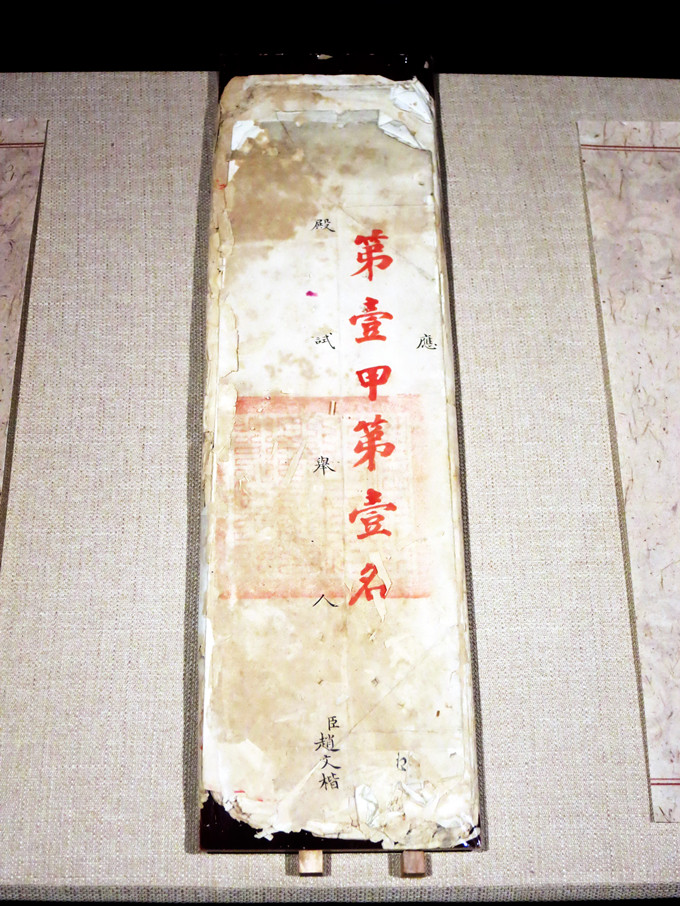 應
第壹甲第壹名
殿試舉人
臣趙文楷